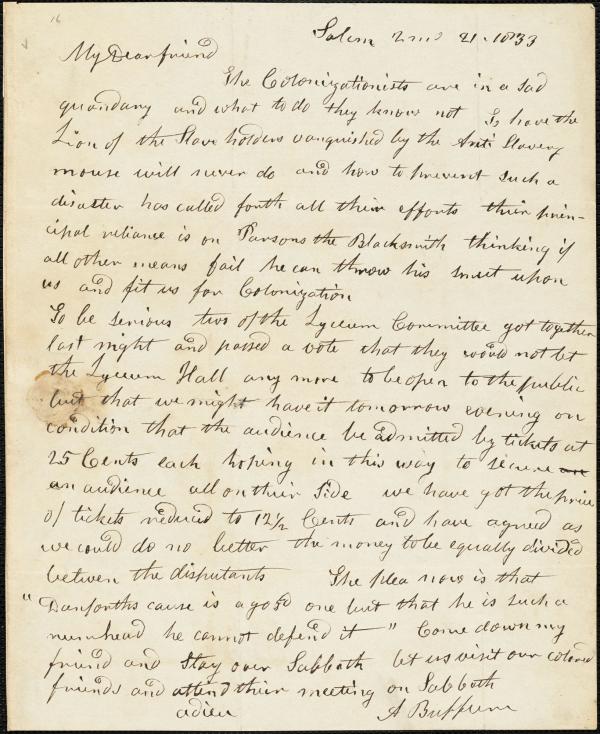 16
Salem 2 mo 21 - 1833
My Dear friend
The Colonizationists are in a sad
quandary and what to do they know not To have the
Lion of the Slave holders vanquished by the Anti Slavery
mouse will never do and how to prevent such a
disaster has called forth all their efforts their prin-
cipal reliance is on Parsons the Blacksmith thinking if
all other means fail he can throw his smut upon
us and fit us for Colonization
To be serious two of the Lyceum Committee got together
last night and passed a vote that they would not let
the Lyceum Hall any more to be open to the public
but that we might have it tomorrow evening on
condition that the audience be admitted by tickets at
25 Cents each hoping in this way to secure
an audience all on their side we have got the price
of tickets reduced to 12½ Cents and have agreed as
we could do no better the money to be equally divided
between the disputants The plea now is that
"Danforths cause is a good one but that he is such a
he cannot defend it — " Come down my
friend and stay over Sabbath let us visit our colored
friends and attend their meeting on Sabbath
adieu A Buffum